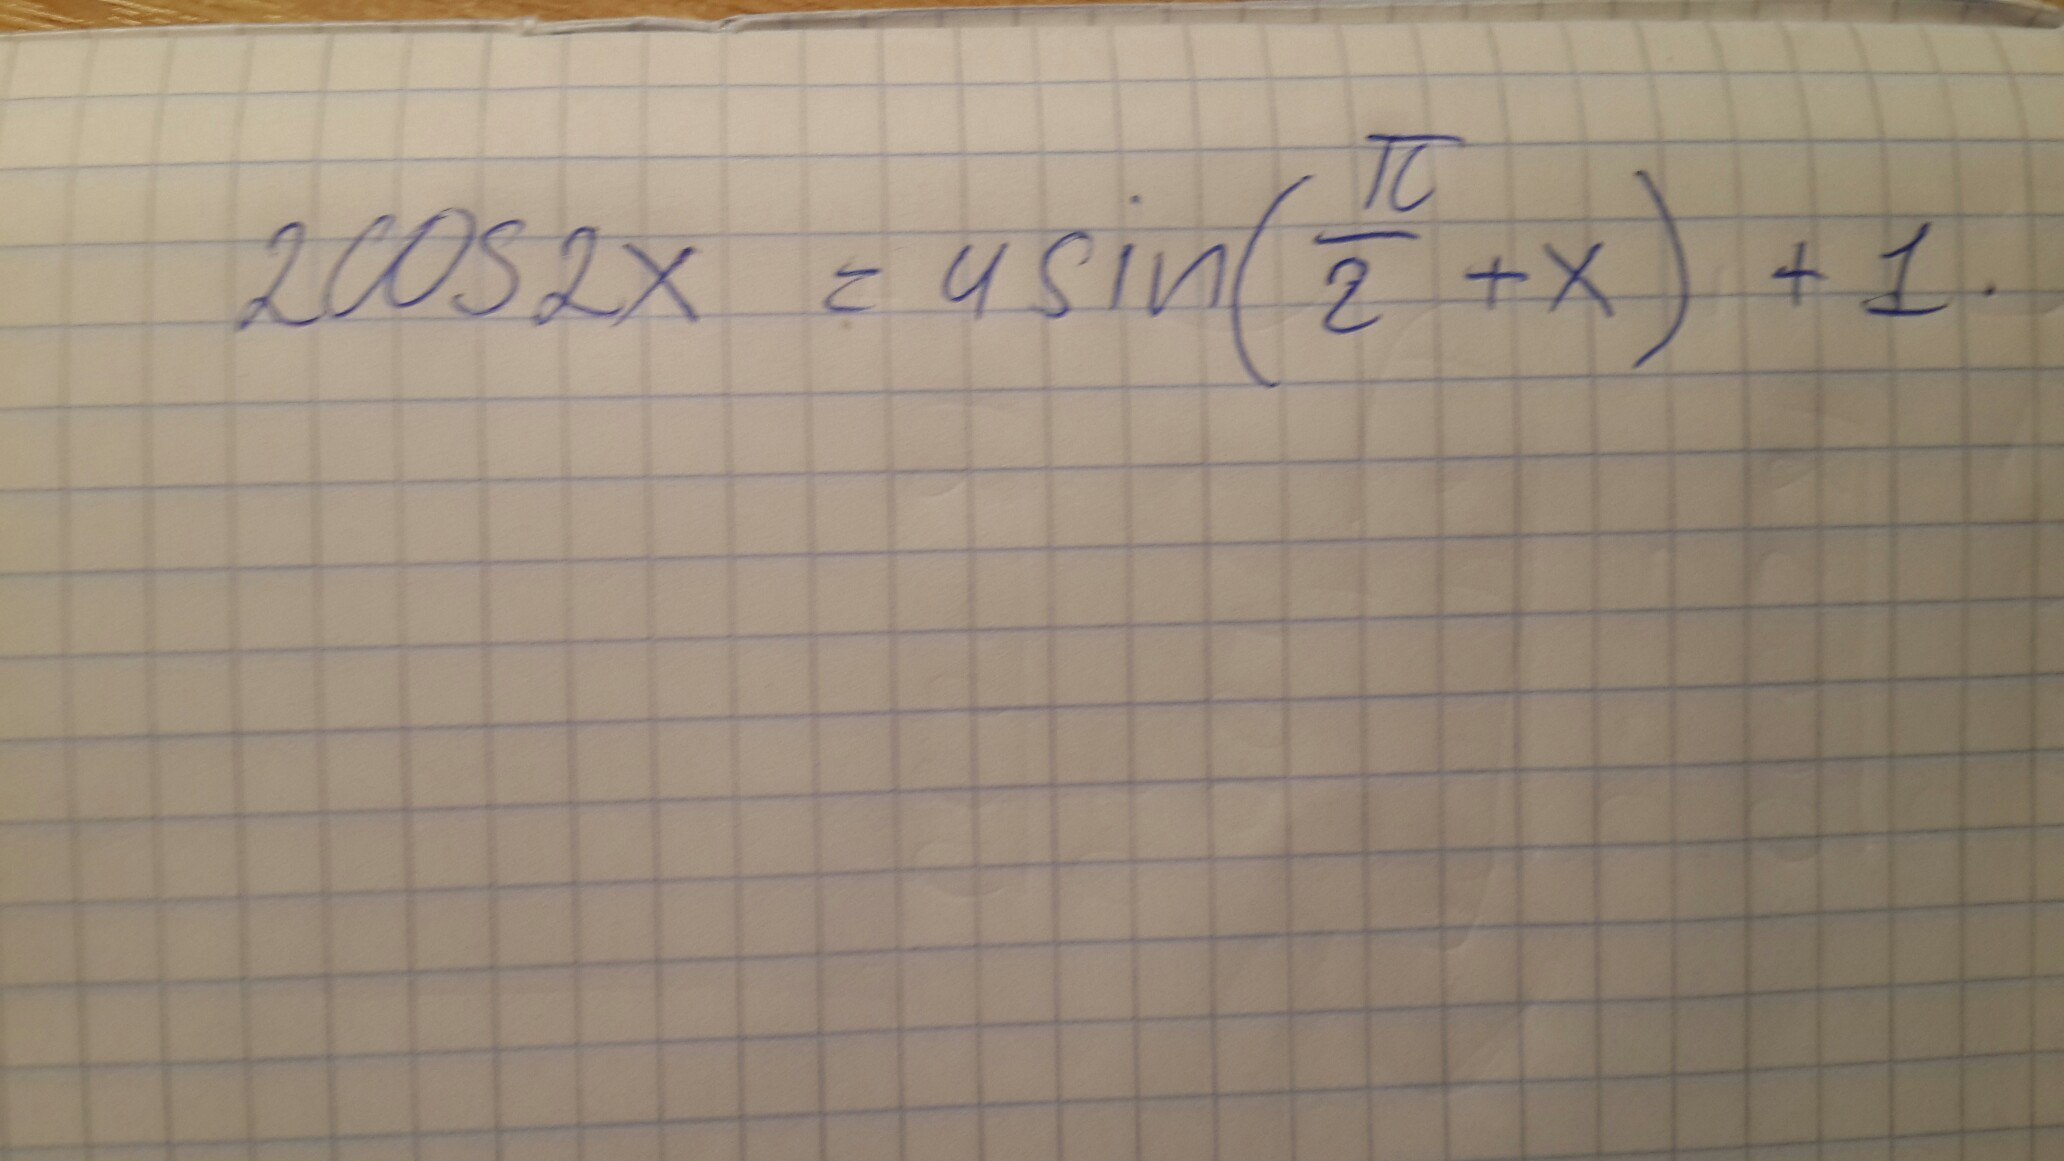 2cos2x = 4sin(π/2 + x) + 1.